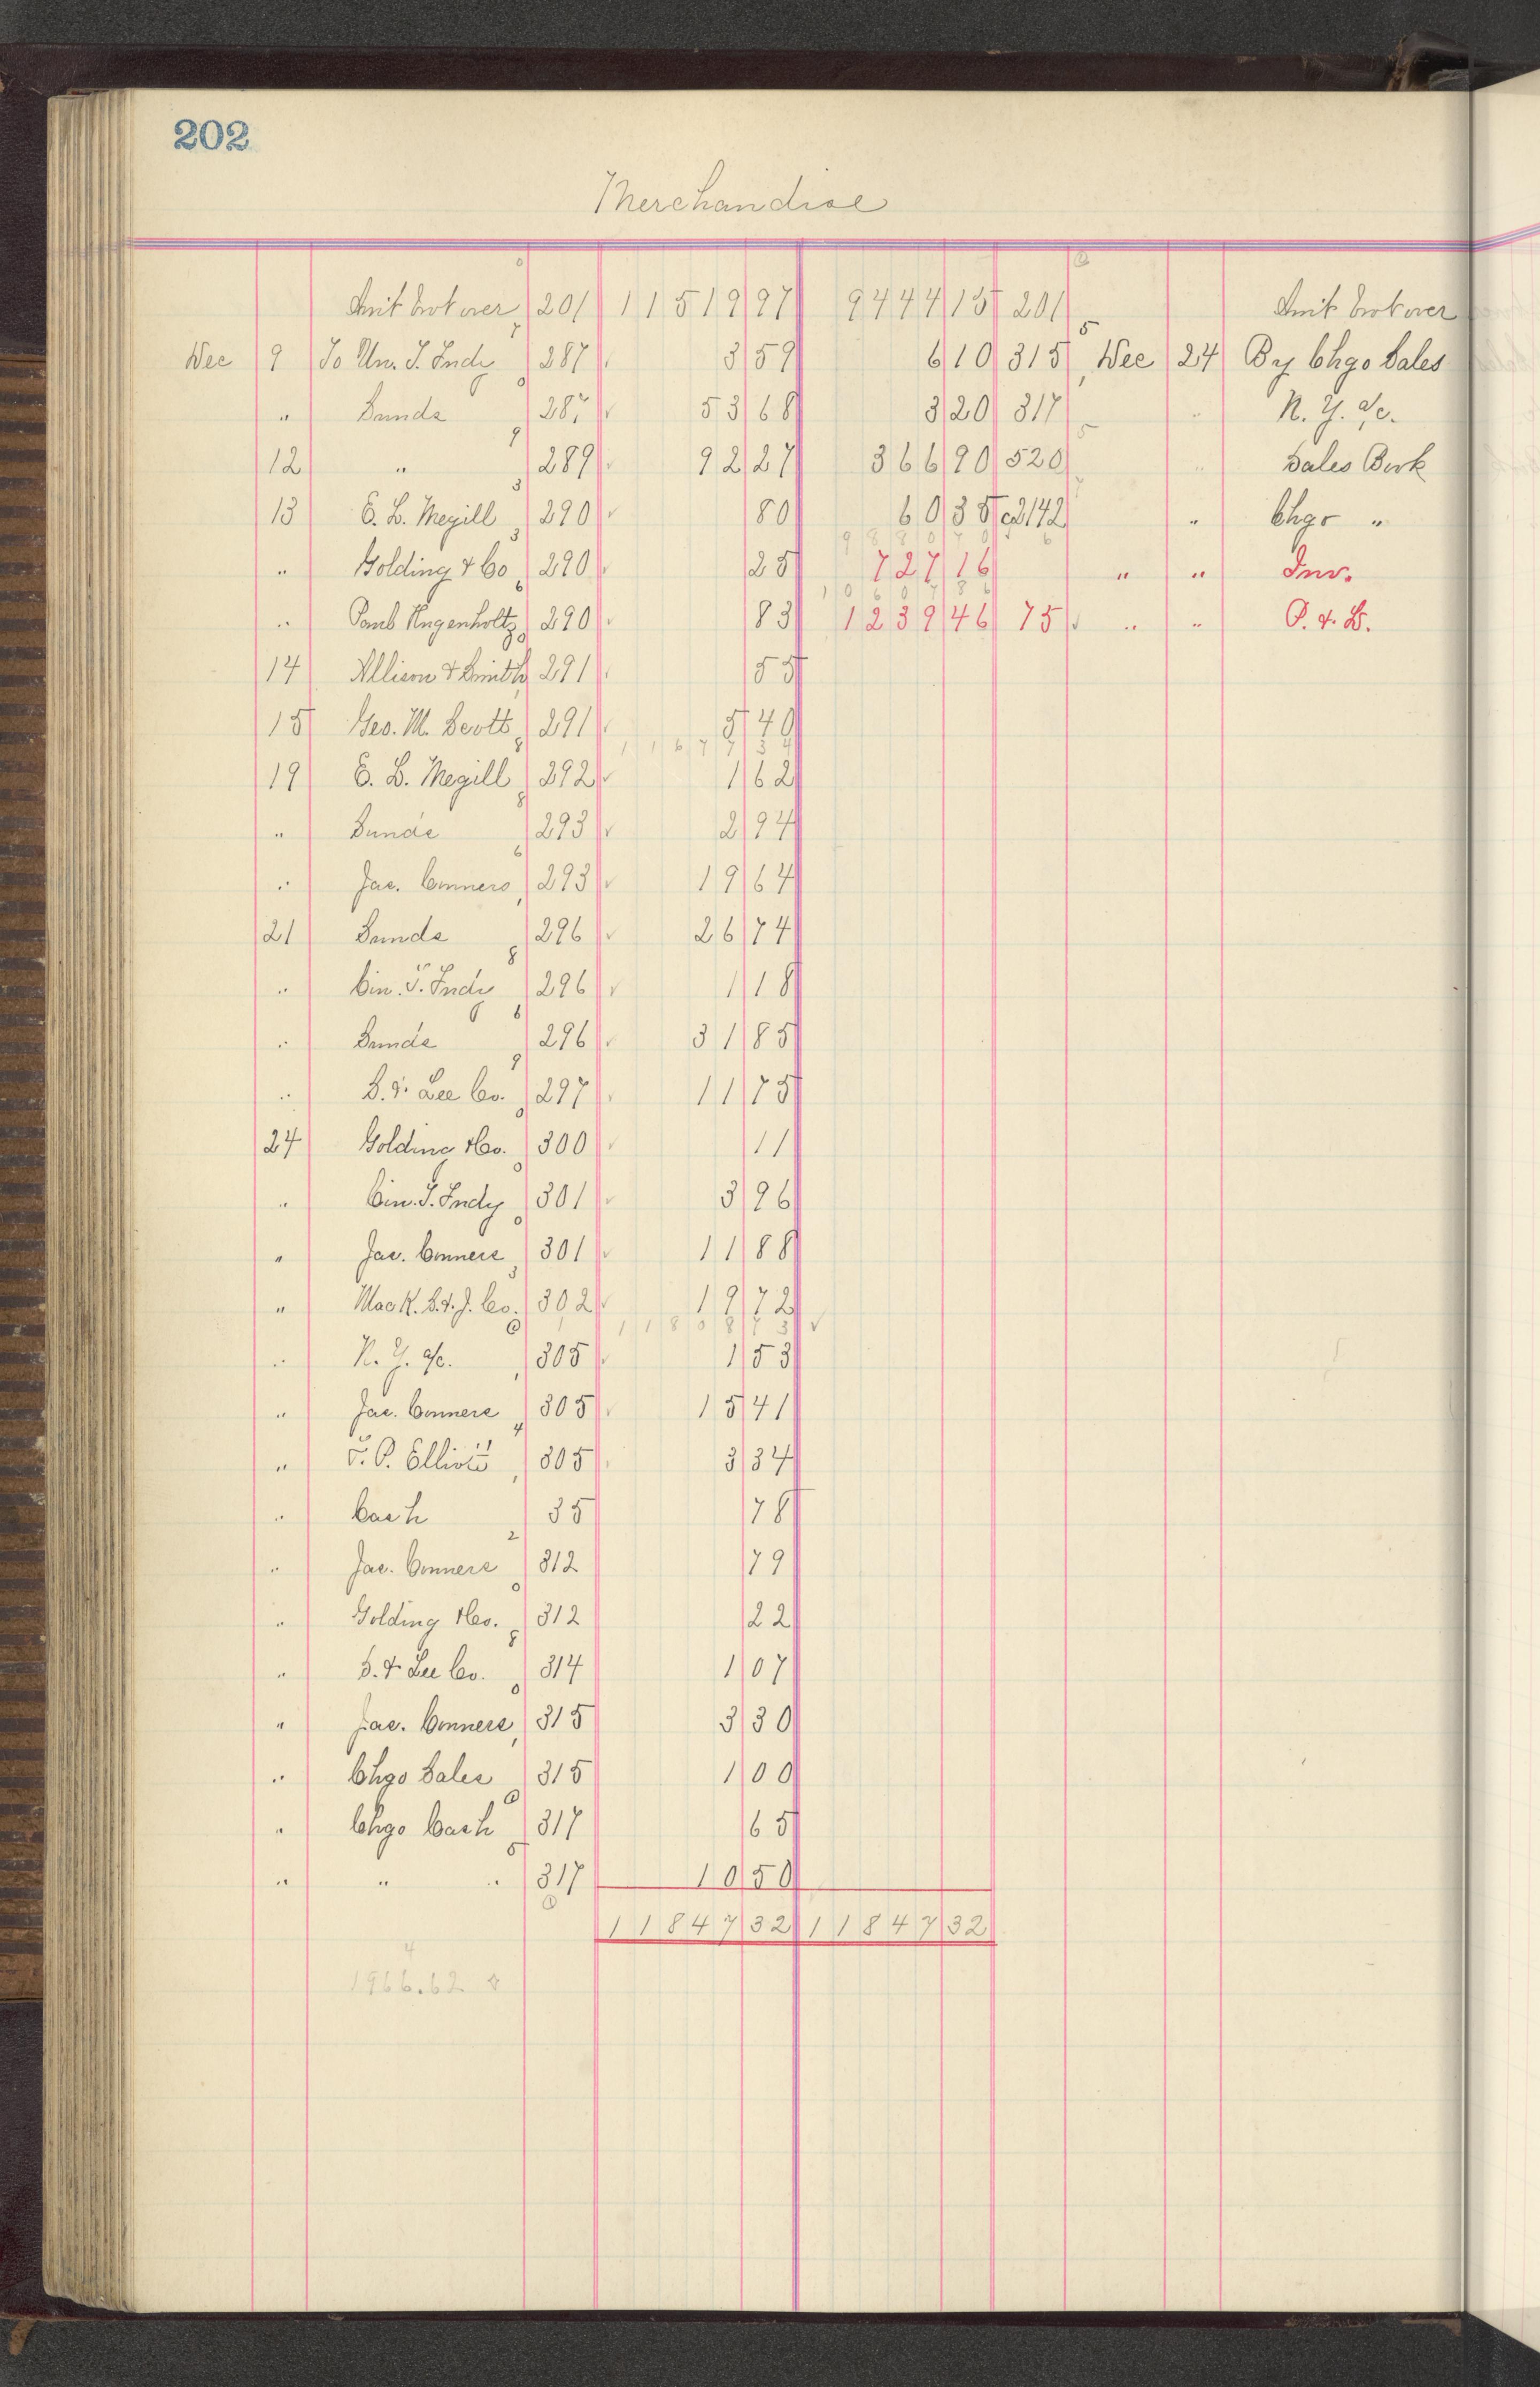 202
Merchandise
Amt brot over 201 11519 97 9444 15 201 Amt brot over
Dec 9 To Un. T. Indy 287 3 59 6 10 315 Dec 24 By Chgo Sales
" Sunds 287 53 68 3 20 317 " N. Y. a/c.
12 " 289 92 27 366 90 520 " Sales Book
13 E. L. Megill 290 80 60 35 142 " Chgo "
" Golding & Co 290 25 727 16 " " Inv.
" Paul Ungenholtz 290 83 1239 46 75 " " P. & L.
14 Allison & Smith 291 55
15 Geo. M. Scott 291 5 40
11677 34
19 E. L. Megill 292 1 62
" Sunds 293 2 94
" Jas. Conners 293 19 64
21 Sunds 296 26 74
" Cin. T. Indy 296 1 18
" Sunds 296 31 85
" S. & Lee Co. 297 11 75
24 Golding & Co. 300 11
" Cin. T. Indy 301 3 96
" Jas. Conners 301 11 88
" Mac K. S. & J. Co. 302 19 72
11808 73
" N. Y. a/c. 305 1 53
" Jas. Conners 305 15 41
" T. P. Elliott 305 3 34
" Cash 35 78
" Jas. Conners 312 79
" Golding & Co. 312 22
" S. & Lee Co. 314 1 07
" Jas. Conners 315 3 30
" Chgo Sales 315 1 00
" Chgo Cash 317 65
" " " 317 10 50
11847 32 11847 32
1966.62